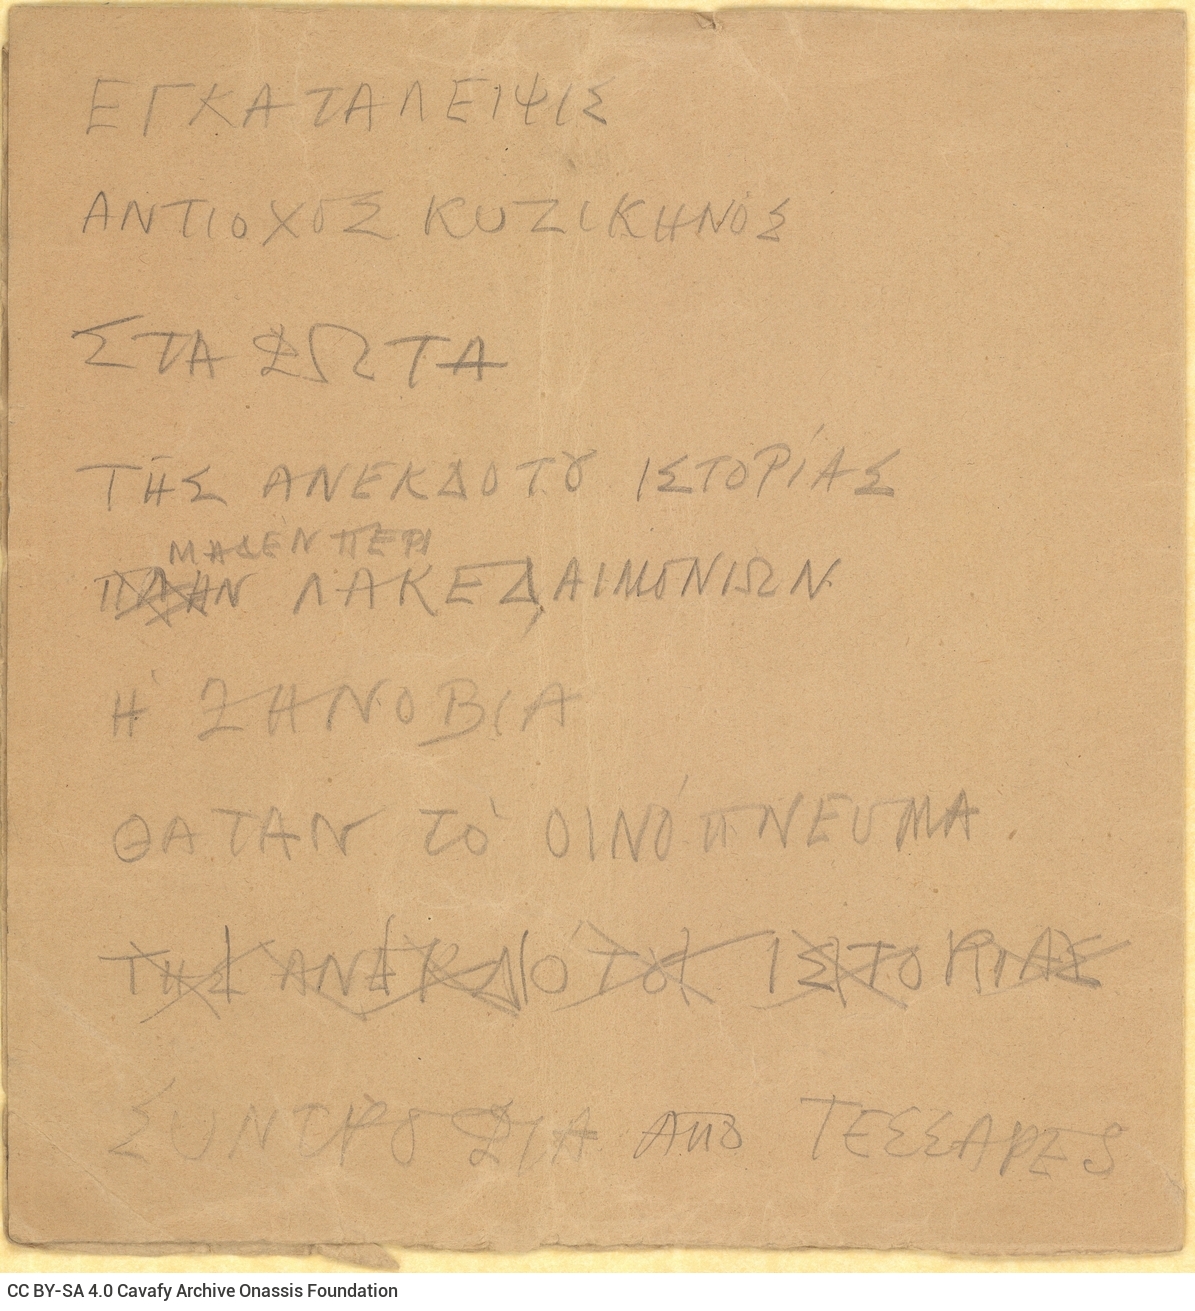 ΕΓΚΑΤΑΛΕΙΨΙΣ
ΑΝΤΙΟΧΟΣ ΚΥΖΙΚΗΝΟΣ
ΣΤΑ ΦΩΤΑ
ΤΗΣ ΑΝΕΚΔΟΤΟΥ ΙΣΤΟΡΙΑΣ
ΜΗΔΕΝ ΠΕΡΙ
ΠΛΗΝ ΛΑΚΕΔΑΙΜΟΝΙΩΝ
Η ΖΗΝΟΒΙΑ
ΘΑΤΑΝ ΤΟ ΟΙΝΟΠΝΕΥΜΑ.
ΤΗΣ ΑΝΕΚΔΟΤΟΥ ΙΣΤΟΡΙΑΣ
ΣΥΝΤΡΟΦΙΑ ΑΠΟ ΤΕΣΣΑΡΕΣ
CC BY-SA 4.0 Cavafy Archive Onassis Foundation